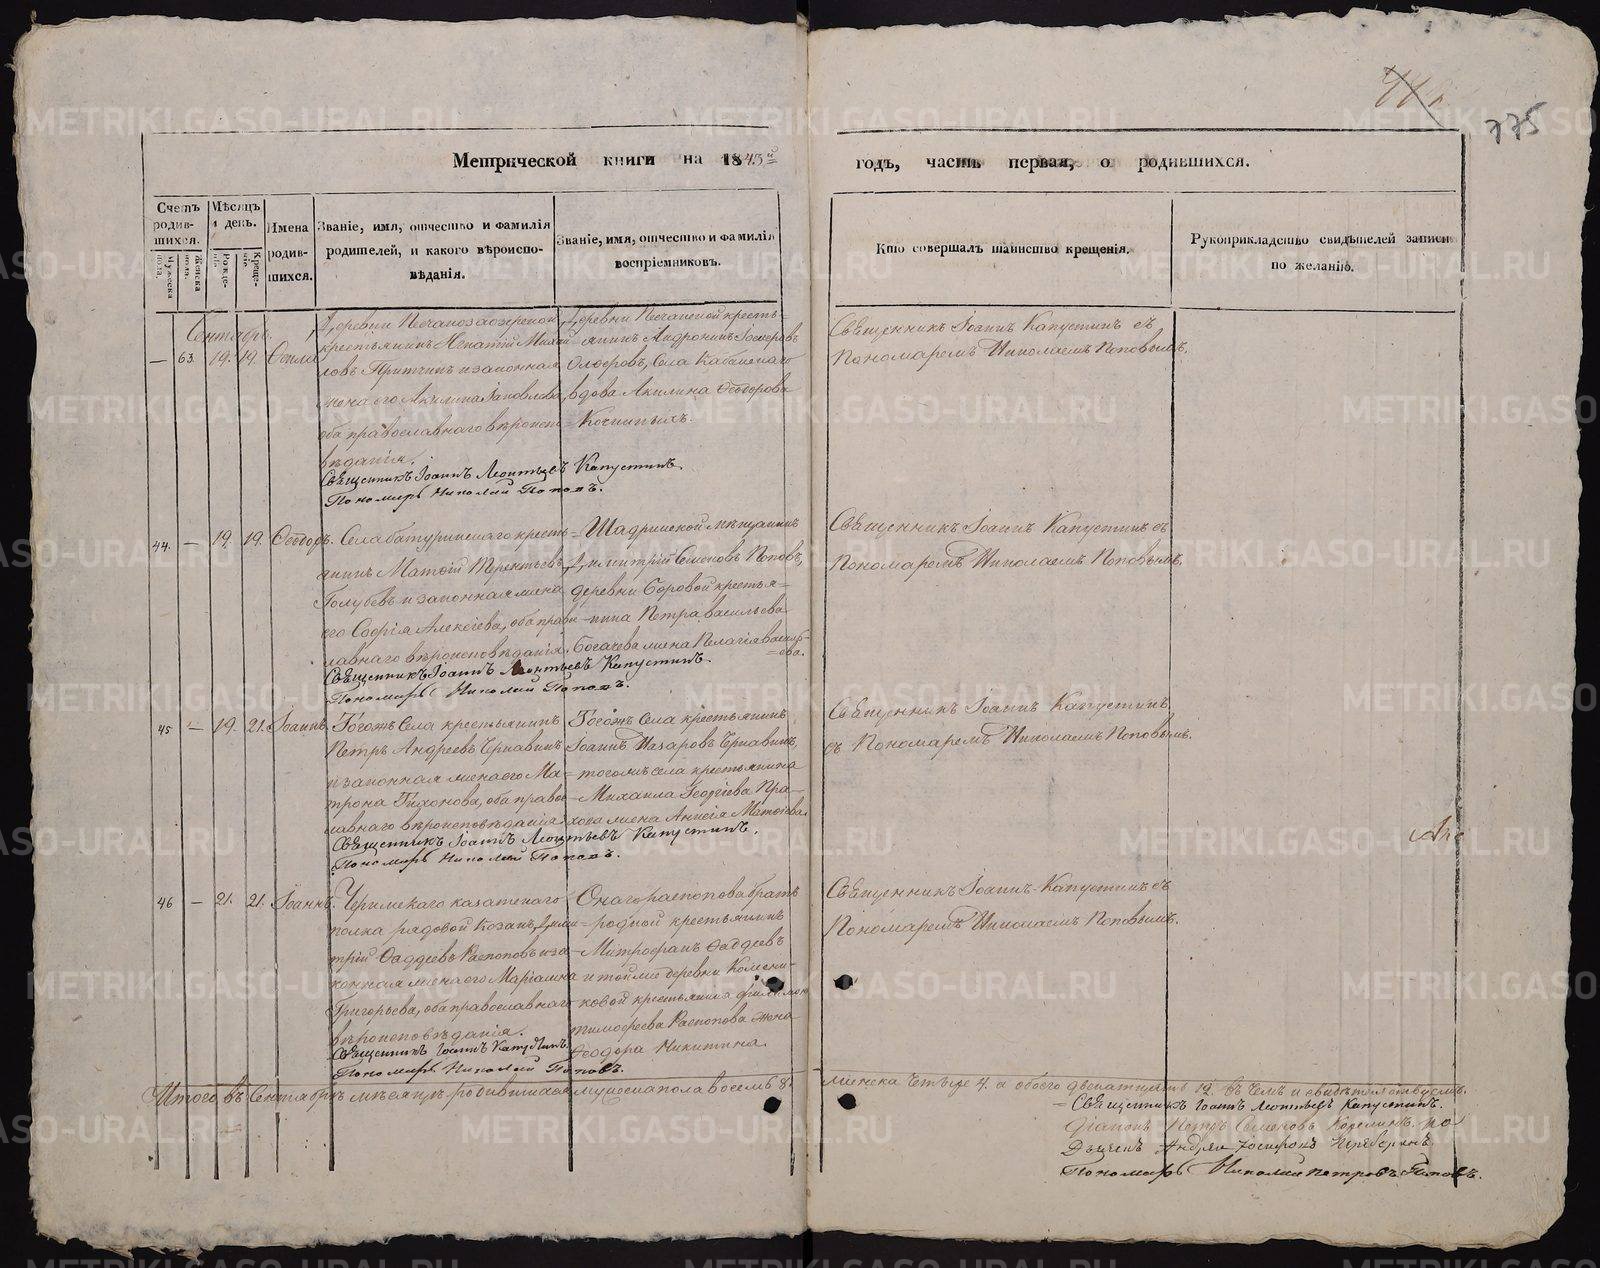 775
Метрической книги на 1843й годъ, часть первая, о родившихся.
Счетъ родившихся.
Мужеска пола.
Женска пола.
Мѣсяцъ и день.
Рожденія.
Крещенія.
Имена родившихся.
Званіе, имя, отчество и фамилія родителей, и какого вѣроисповѣданія.
Званіе, имя, отчество и фамилія воспріемниковъ.
Кто совершалъ таинство крещенія.
Рукоприкладство свидѣтелей записи по желанію.
Сентябрь.
— 63. 19. 19.
Деревни
крестьянинъ Игнатій
и законная
жена его Акилина Яковлева,
оба православнаго вѣроиспо=
вѣданія.
Деревни
Села
вдова Акилина Ѳеодорова
Священникъ Іоаннъ Капустинъ съ
Пономаремъ Николаемъ Поповымъ.
Священникъ Іоаннъ Леонтьевъ Капустинъ.
Пономарь Николай Поповъ.
44. — 19. 19. Ѳеодоръ.
Села Батуринскаго кресть=
янинъ Матѳій Терентьевъ
Голубевъ и законная жена
его Софія Алексіева, оба право
славнаго вѣроисповѣданія.
Шадринской мѣщанинъ
Димитрій Семеновъ Поповъ,
деревни Боровой крестья=
нина Петра Васильева
Богачева жена Пелагія Василь=
=ева.
Священникъ Іоаннъ Капустинъ съ
Пономаремъ Николаемъ Поповымъ.
Священникъ Іоаннъ Леонтьевъ Капустинъ.
Пономарь Николай Поповъ.
45 — 19. 21. Іоаннъ.
Тогожъ Села крестьянинъ
Петръ Андреевъ Чернавинъ
и законная жена его Ма=
трона Тихонова, оба право
славнаго вѣроисповѣданія.
Тогожъ Села крестьянинъ
Іоаннъ Назаровъ Чернавинъ,
тогожъ села крестьянина
Михаила Георгіева
жена Анисія Матѳіева.
Священникъ Іоаннъ Капустинъ
съ Пономаремъ Николаемъ Поповымъ.
Священникъ Іоаннъ Леонтьевъ Капустинъ.
Пономарь Николай Поповъ.
46 — 21. 21. Іоаннъ.
казачьяго
полка рядовой Козакъ Дими=
трій Ѳаддеевъ Распоповъ и за=
конная жена его Маріамна
Григорьева, оба православнаго
вѣроисповѣданія.
Онаго Распопова братъ
родной крестьянинъ
Митрофанъ Ѳаддеевъ
и тойже деревни
крестьянина
Тимофеева Распопова жена
Ѳеодора Никитина.
Священникъ Іоаннъ Капустинъ съ
Пономаремъ Николаемъ Поповымъ.
Священникъ Іоаннъ Капустинъ.
Пономарь Николай Поповъ.
Итого въ Сентябрѣ мѣсяцѣ родившихся мужеска пола восемь 8.
женска четыре 4. а обоего двенатцать 12. въ чемъ и свидѣтельствуемъ.
Священникъ Іоаннъ Леонтьевъ Капустинъ.
Діаконъ Петръ
Дьячекъ Андрей
Пономарь Николай Петровъ Поповъ.
METRIKI.GASO-URAL.RU